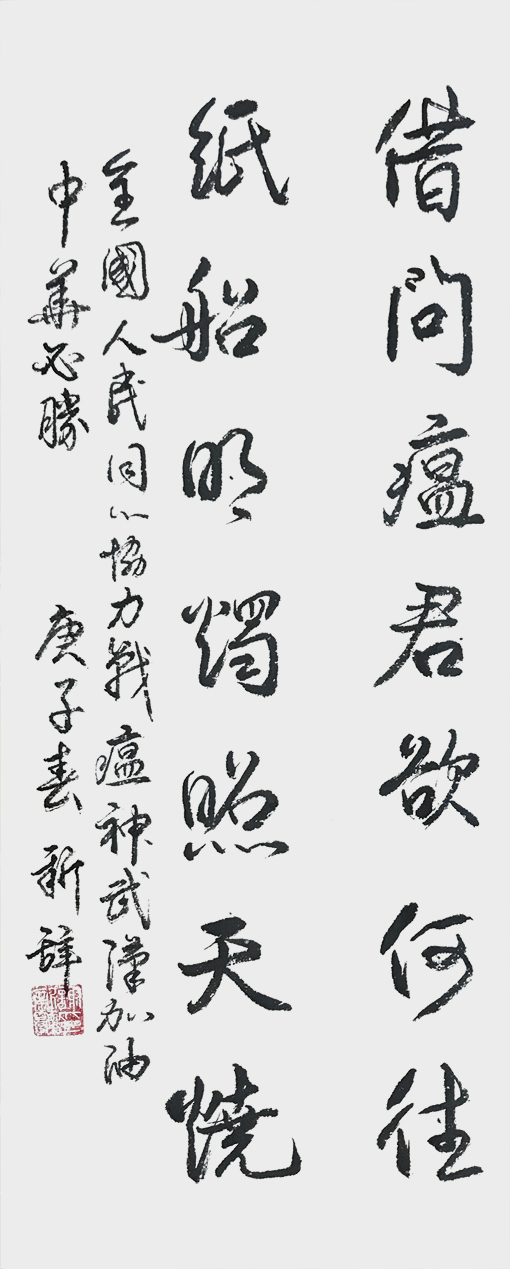 借問瘟君欲何往
紙船明燭照天燒
全國人民同心協力戰瘟神武漢加油
中華必勝
庚子春 新